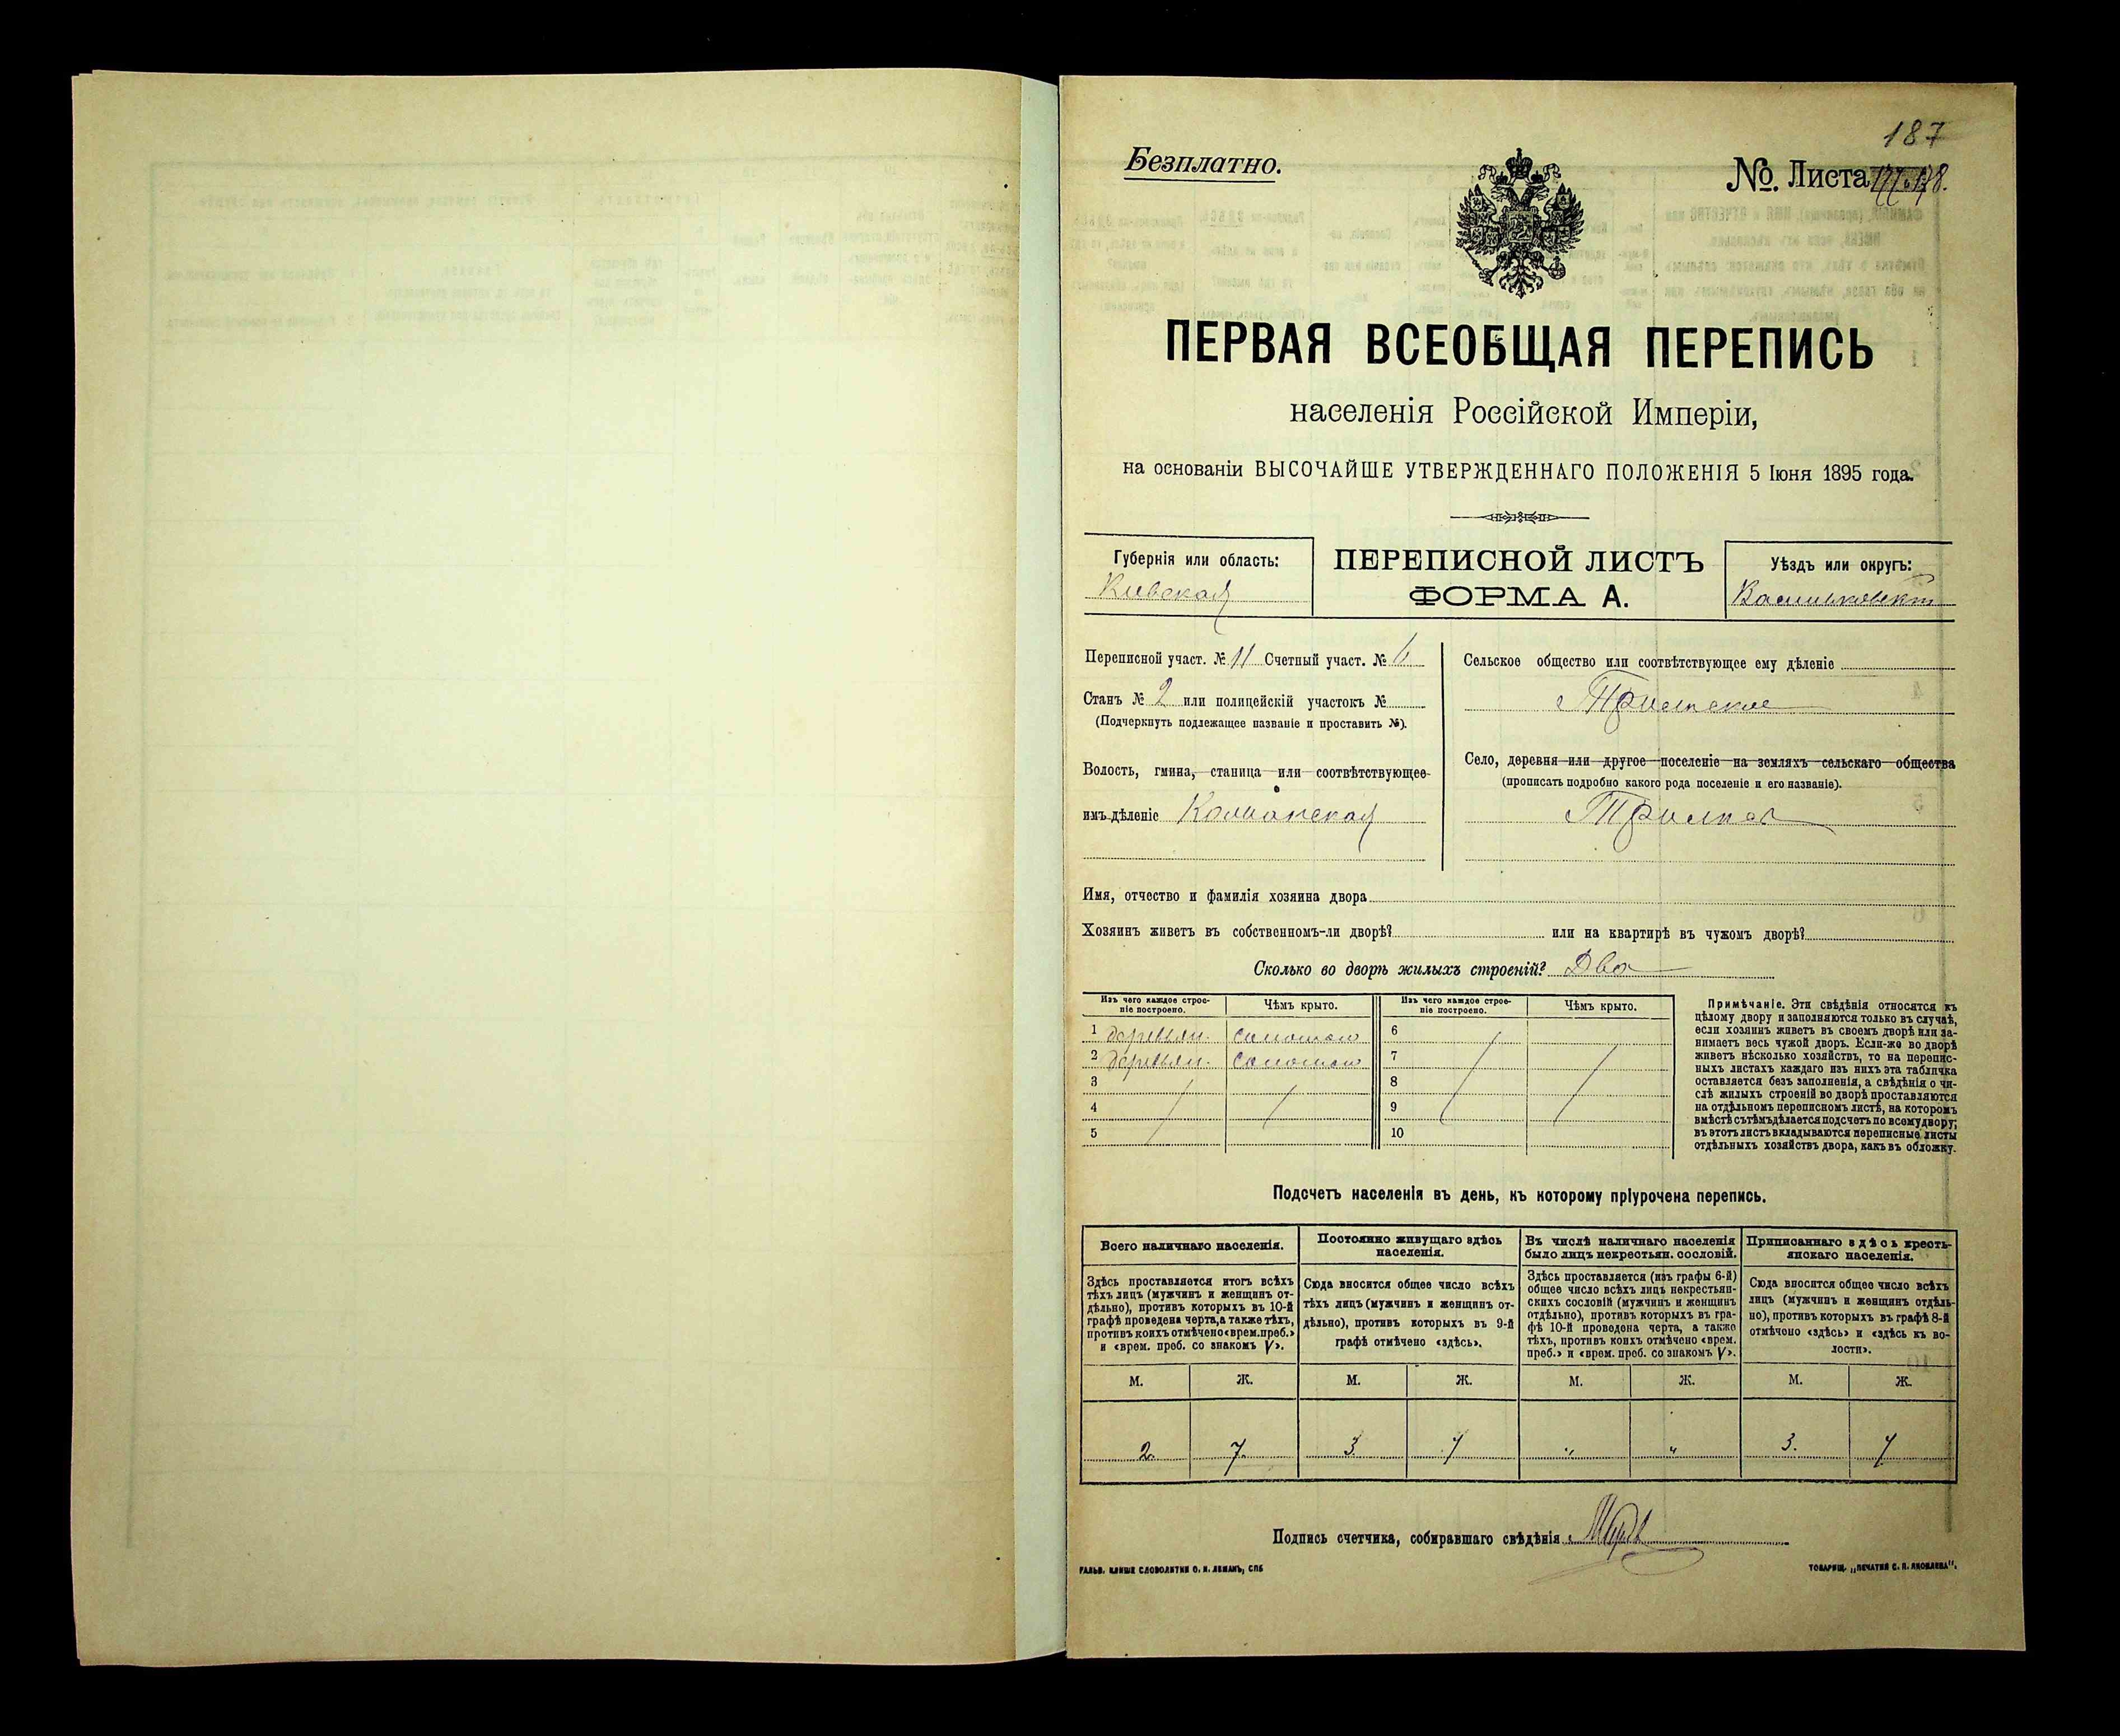 187
Безплатно.
№. Листа
ПЕРВАЯ ВСЕОБЩАЯ ПЕРЕПИСЬ
населенія Россійской Имперіи,
на основаніи ВЫСОЧАЙШЕ УТВЕРЖДЕННАГО ПОЛОЖЕНІЯ 5 Іюня 1895 года.
Губернія или область:
Кіевская
ПЕРЕПИСНОЙ ЛИСТЪ
ФОРМА А.
Уѣздъ или округъ:
Переписной участ. № 11 Счетный участ. № 6
Станъ № 2 или полицейскій участокъ №
(Подчеркнуть подлежащее названіе и проставить №).
Волость, гмина, станица или соотвѣтствующее
имъ дѣленіе
Сельское общество или соотвѣтствующее ему дѣленіе
Село, деревня или другое поселеніе на земляхъ сельскаго общества
(прописать подробно какого рода поселеніе и его названіе).
Имя, отчество и фамилія хозяина двора
Хозяинъ живетъ въ собственномъ-ли дворѣ? или на квартирѣ въ чужомъ дворѣ?
Сколько во дворѣ жилыхъ строеній? Два
Изъ чего каждое строе-
ніе построено.
Чѣмъ крыто.
Изъ чего каждое строе-
ніе построено.
Чѣмъ крыто.
1 деревян. соломою 6
2 деревян. соломою 7
3 8
4 9
5 10
Примѣчаніе. Эти свѣдѣнія относятся къ
цѣлому двору и заполняются только въ случаѣ,
если хозяинъ живетъ въ своемъ дворѣ или за-
нимаетъ весь чужой дворъ. Если-же во дворѣ
живетъ нѣсколько хозяйствъ, то на перепис-
ныхъ листахъ каждаго изъ нихъ эта табличка
оставляется безъ заполненія, а свѣдѣнія о чи-
слѣ жилыхъ строеній во дворѣ проставляются
на отдѣльномъ переписномъ листѣ, на которомъ
вмѣстѣ съ тѣмъ дѣлается подсчетъ по всему двору;
въ этотъ листъ вкладываются переписные листы
отдѣльныхъ хозяйствъ двора, какъ въ обложку.
Подсчетъ населенія въ день, къ которому пріурочена перепись.
Всего наличнаго населенія.
Здѣсь проставляется итогъ всѣхъ
тѣхъ лицъ (мужчинъ и женщинъ от-
дѣльно), противъ которыхъ въ 10-й
графѣ проведена черта, а также тѣхъ,
противъ коихъ отмѣчено «врем. преб.»
и «врем. преб. со знакомъ V».
Постоянно живущаго здѣсь
населенія.
Сюда вносится общее число всѣхъ
тѣхъ лицъ (мужчинъ и женщинъ от-
дѣльно), противъ которыхъ въ 9-й
графѣ отмѣчено «здѣсь».
Въ числѣ наличнаго населенія
было лицъ некрестьян. сословій.
Здѣсь проставляется (изъ графы 6-й)
общее число всѣхъ лицъ некрестьян-
скихъ сословій (мужчинъ и женщинъ
отдѣльно), противъ которыхъ въ гра-
фѣ 10-й проведена черта, а также
тѣхъ, противъ коихъ отмѣчено «врем.
преб.» и «врем. преб. со знакомъ V».
Приписаннаго здѣсь кресть-
янскаго населенія.
Сюда вносится общее число всѣхъ
лицъ (мужчинъ и женщинъ отдѣль-
но), противъ которыхъ въ графѣ 8-й
отмѣчено «здѣсь» и «здѣсь къ во-
лости».
М. Ж. М. Ж. М. Ж. М. Ж.
2. 7. 3. 7 " " 3. 7
Подпись счетчика, собиравшаго свѣдѣнія
ГАЛЬВ. КЛИШЕ СЛОВОЛИТНИ О. И. ЛЕМАНЪ, СПБ
ТОВАРИЩ. „ПЕЧАТНЯ С. П. ЯКОВЛЕВА".